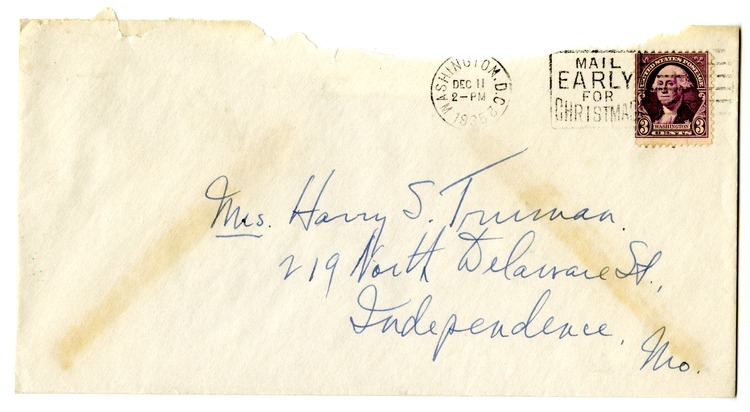 WASHINGTON, D.C.
DEC 11
2-PM
1935
MAIL
EARLY
FOR
CHRISTMAS
UNITED STATES POSTAGE
WASHINGTON
3 CENTS 3
Mrs. Harry S. Truman.
219 North Delaware St.,
Independence,
Mo.